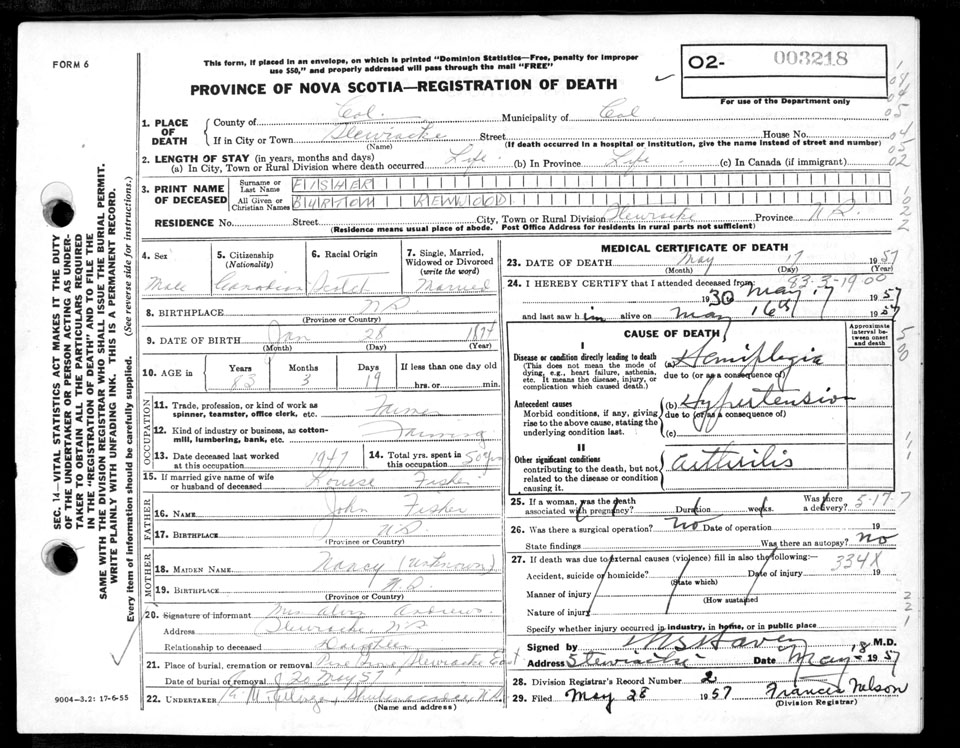 FORM 6
This form, if placed in an envelope, on which is printed "Dominion Statistics—Free, penalty for improper
use $50," and properly addressed will pass through the mail "FREE"
PROVINCE OF NOVA SCOTIA—REGISTRATION OF DEATH
O2- 003218
For use of the Department only
1. PLACE OF DEATH
County of Col. Municipality of Col
If in City or Town Stewiacke Street House No.
(Name) (If death occurred in a hospital or institution, give the name instead of street and number)
2. LENGTH OF STAY (in years, months and days)
(a) In City, Town or Rural Division where death occurred Life (b) In Province Life (c) In Canada (if immigrant)
3. PRINT NAME OF DECEASED
Surname or Last Name FISHER
All Given or Christian Names BURTON
RESIDENCE No. Street City, Town or Rural Division Stewiacke Province N.S.
(Residence means usual place of abode. Post Office Address for residents in rural parts not sufficient)
4. Sex Male
5. Citizenship (Nationality) Canadian
6. Racial Origin
7. Single, Married, Widowed or Divorced (write the word) Married
8. BIRTHPLACE N.S.
(Province or Country)
9. DATE OF BIRTH Jan 28 1874
(Month) (Day) (Year)
10. AGE in Years 83 Months 3 Days 19 If less than one day old hrs. or min.
OCCUPATION
11. Trade, profession, or kind of work as spinner, teamster, office clerk, etc. Farmer
12. Kind of industry or business, as cotton-mill, lumbering, bank, etc. Farming
13. Date deceased last worked at this occupation 1947
14. Total yrs. spent in this occupation 50 yrs
15. If married give name of wife or husband of deceased Louise Fisher
FATHER
16. NAME John Fisher
17. BIRTHPLACE N.S.
(Province or Country)
MOTHER
18. MAIDEN NAME Nancy (unknown)
19. BIRTHPLACE N.S.
(Province or Country)
20. Signature of informant Mrs Alvin Andrews
Address Stewiacke, N.S.
Relationship to deceased Daughter
21. Place of burial, cremation or removal Pine Grove, Stewiacke East
Date of burial or removal 20 May 57
22. UNDERTAKER
(Name and address)
MEDICAL CERTIFICATE OF DEATH
23. DATE OF DEATH May 17 1957
(Month) (Day) (Year)
24. I HEREBY CERTIFY that I attended deceased from: 83-3-19 00
1930 May 17 1957
and last saw him alive on May 16th 1957
CAUSE OF DEATH
Approximate interval between onset and death
I
Disease or condition directly leading to death
(This does not mean the mode of dying, e.g., heart failure, asthenia, etc. It means the disease, injury, or complication which caused death.)
(a) Hemiplegia
due to (or as a consequence of)
Antecedent causes
Morbid conditions, if any, giving rise to the above cause, stating the underlying condition last.
(b) Hypertension
due to (or as a consequence of)
(c)
II
Other significant conditions
contributing to the death, but not related to the disease or condition causing it.
arthritis
25. If a woman, was the death associated with pregnancy? Duration weeks. Was there a delivery? 5-17-7
26. Was there a surgical operation? No Date of operation 19
State findings Was there an autopsy? No
27. If death was due to external causes (violence) fill in also the following: 334X
Accident, suicide or homicide? Date of injury 19
(State which)
Manner of injury
(How sustained)
Nature of injury
Specify whether injury occurred in industry, in home, or in public place
Signed by M.D.
Address Stewiacke Date May 18 1957
28. Division Registrar's Record Number 2
29. Filed May 28 1957 Francis Nelson
(Division Registrar)
SEC. 14—VITAL STATISTICS ACT MAKES IT THE DUTY
OF THE UNDERTAKER OR PERSON ACTING AS UNDER-
TAKER TO OBTAIN ALL THE PARTICULARS REQUIRED
IN THE "REGISTRATION OF DEATH" AND TO FILE THE
SAME WITH THE DIVISION REGISTRAR WHO SHALL ISSUE THE BURIAL PERMIT.
WRITE PLAINLY WITH UNFADING INK. THIS IS A PERMANENT RECORD.
Every item of information should be carefully supplied. (See reverse side for instructions.)
9004—3.2: 17-6-55